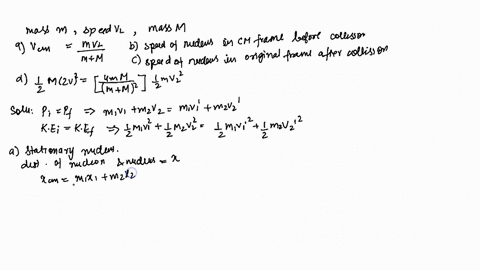 mass m, speed V2, mass M
a) Vcm = mV2/m+M b) speed of nucleus in CM frame before collision
c) speed of nucleus in original frame after collision
d) 1/2 M(2V)² = [4mM/(m+M)²] 1/2 mV2²
Solu: Pi = Pf ⇒ m1V1 + m2V2 = m1V1' + m2V2'
K·Ei = K·Ef ⇒ 1/2 m1V1² + 1/2 M2V2² = 1/2 m1V1'² + 1/2 m2V2'²
a) Stationary nucleus.
dist. of nucleon & nucleus = x
xcm = m1x1 + m2x2